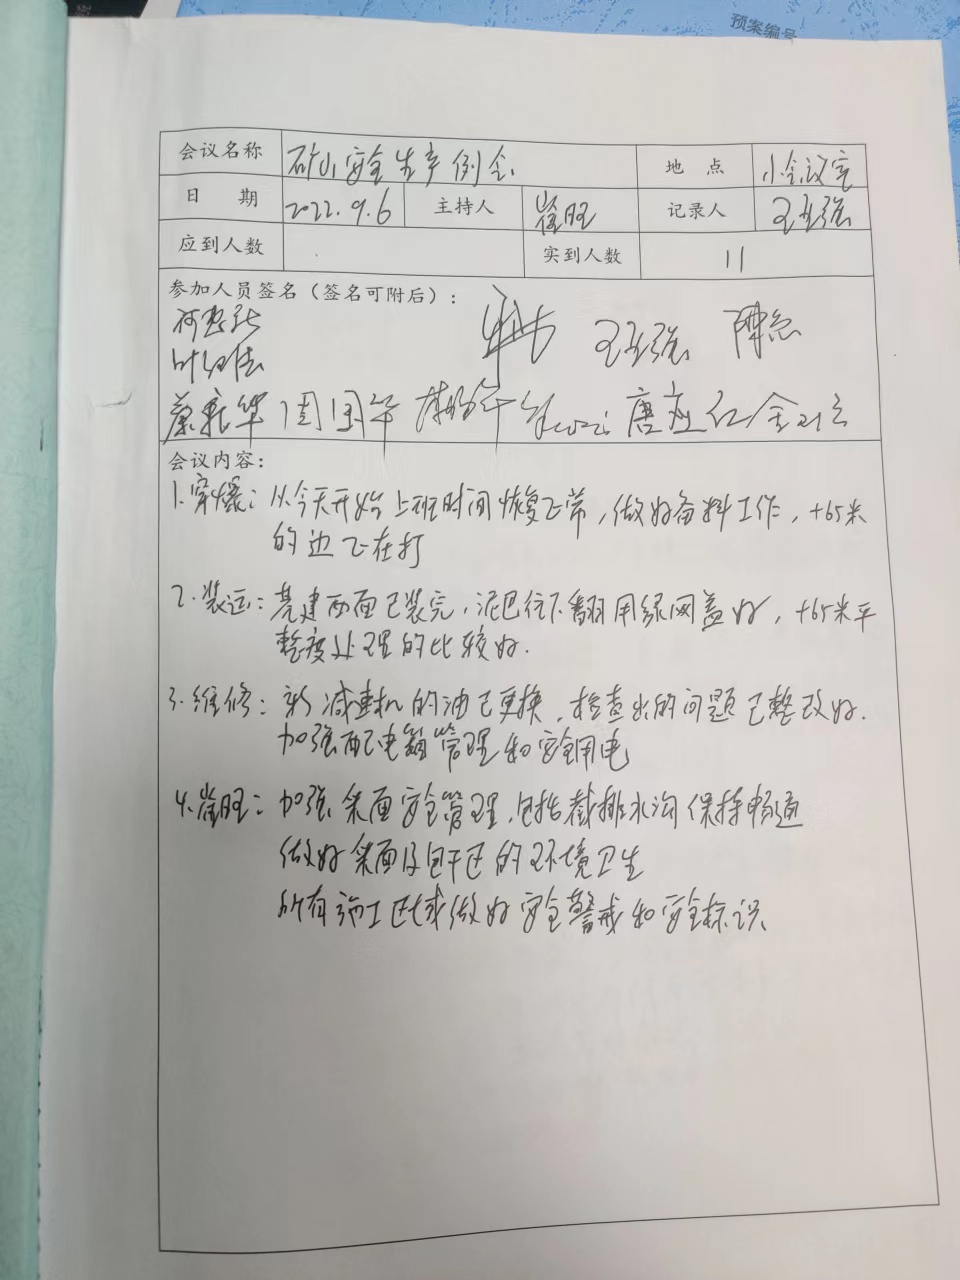 预案编号
会议名称 矿山安全生产例会 地 点 小会议室
日 期 2022.9.6 主持人 崔旺 记录人 王玉强
应到人数 实到人数 11
参加人员签名（签名可附后）：
王玉强
周国午 唐应红
会议内容：
1.穿爆：从今天开始上班时间恢复正常，做好备料工作，+65米
的边飞在打
2.装运：基建两面已装完，泥巴往下翻用绿网盖好，+65米平
整度处理的比较好.
3.维修：新减速机的油已更换，检查出的问题已整改好.
加强配电箱管理和安全用电
4.崔旺：加强采面安全管理，包括截排水沟保持畅通
做好采面及包干区的环境卫生
所有施工区域做好安全警戒和安全标识